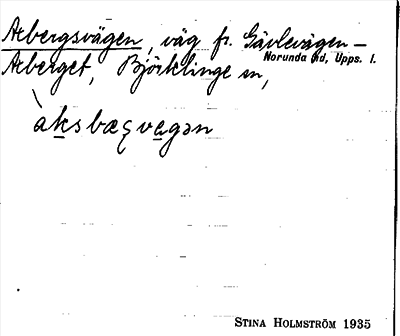 Axbergsvägen, väg fr. Gävlevägen –
Axberget, Björklinge sn,
Norunda hd, Upps. l.
aksbæꞩvegən
STINA HOLMSTRÖM 1935